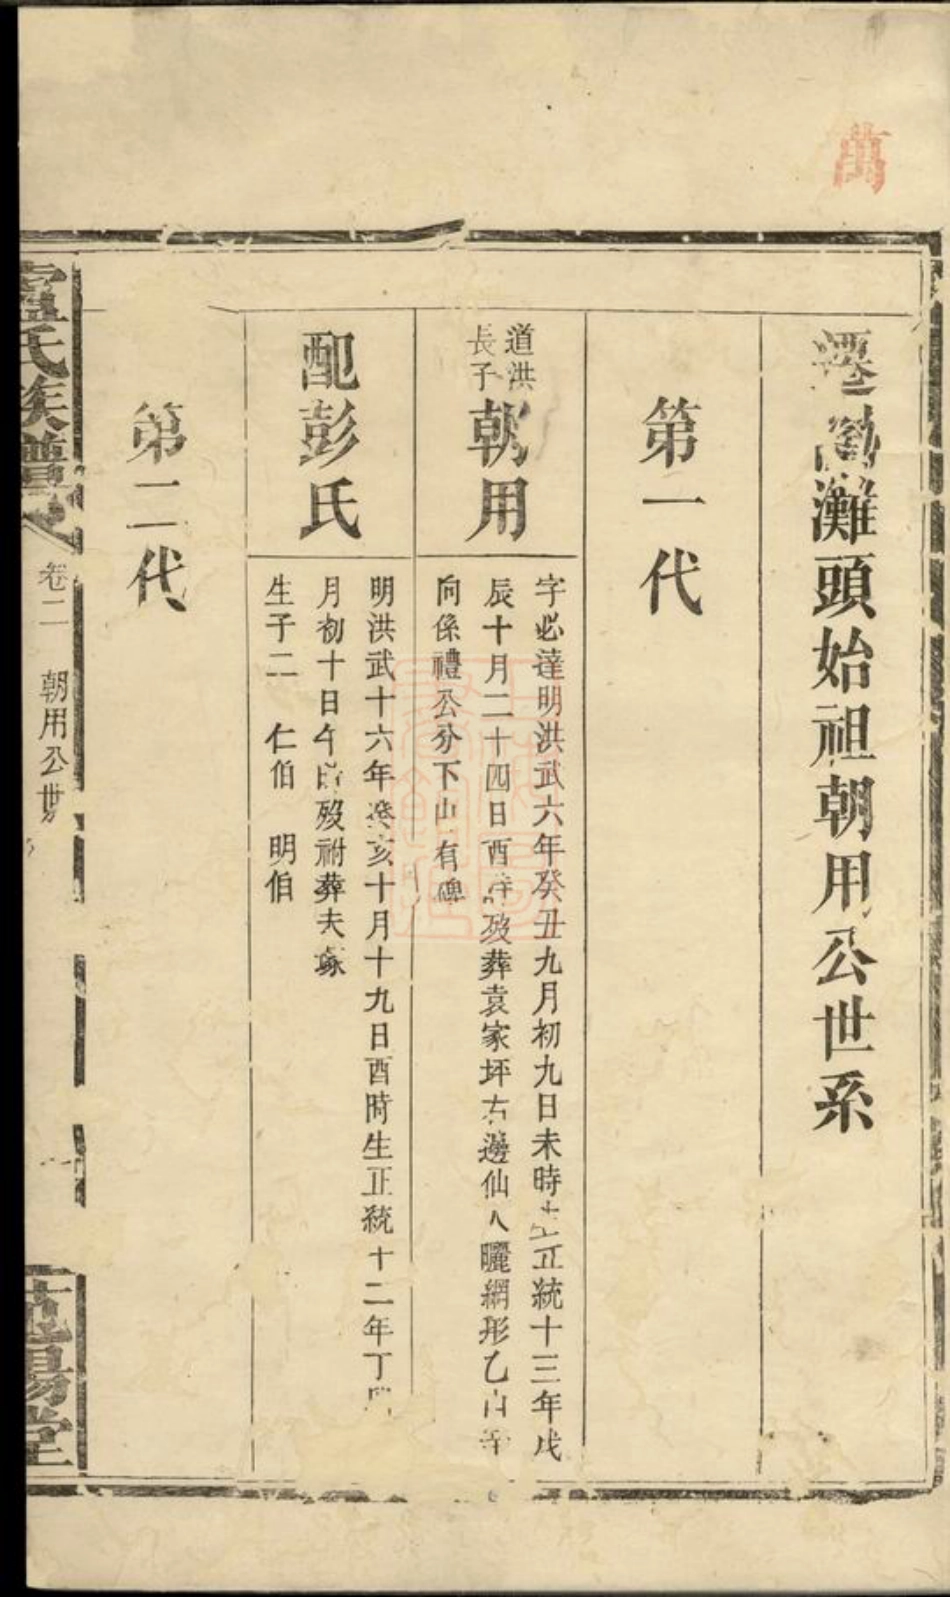 萬
遷 灘頭始祖朝用公世系
第一代
道洪
長子
朝用
字必達明洪武六年癸丑九月初九日未時生正統十三年戊
辰十月二十四日酉時歿葬袁家坪右邊仙人曬網形乙山辛
向係禮公分下山有碑
配彭氏
明洪武十六年癸亥十月十九日酉時生正統十二年丁
月初十日午時歿祔葬夫冢
生子二 仁伯 明伯
第二代
氏族譜
卷二 朝用公世
一
陽堂